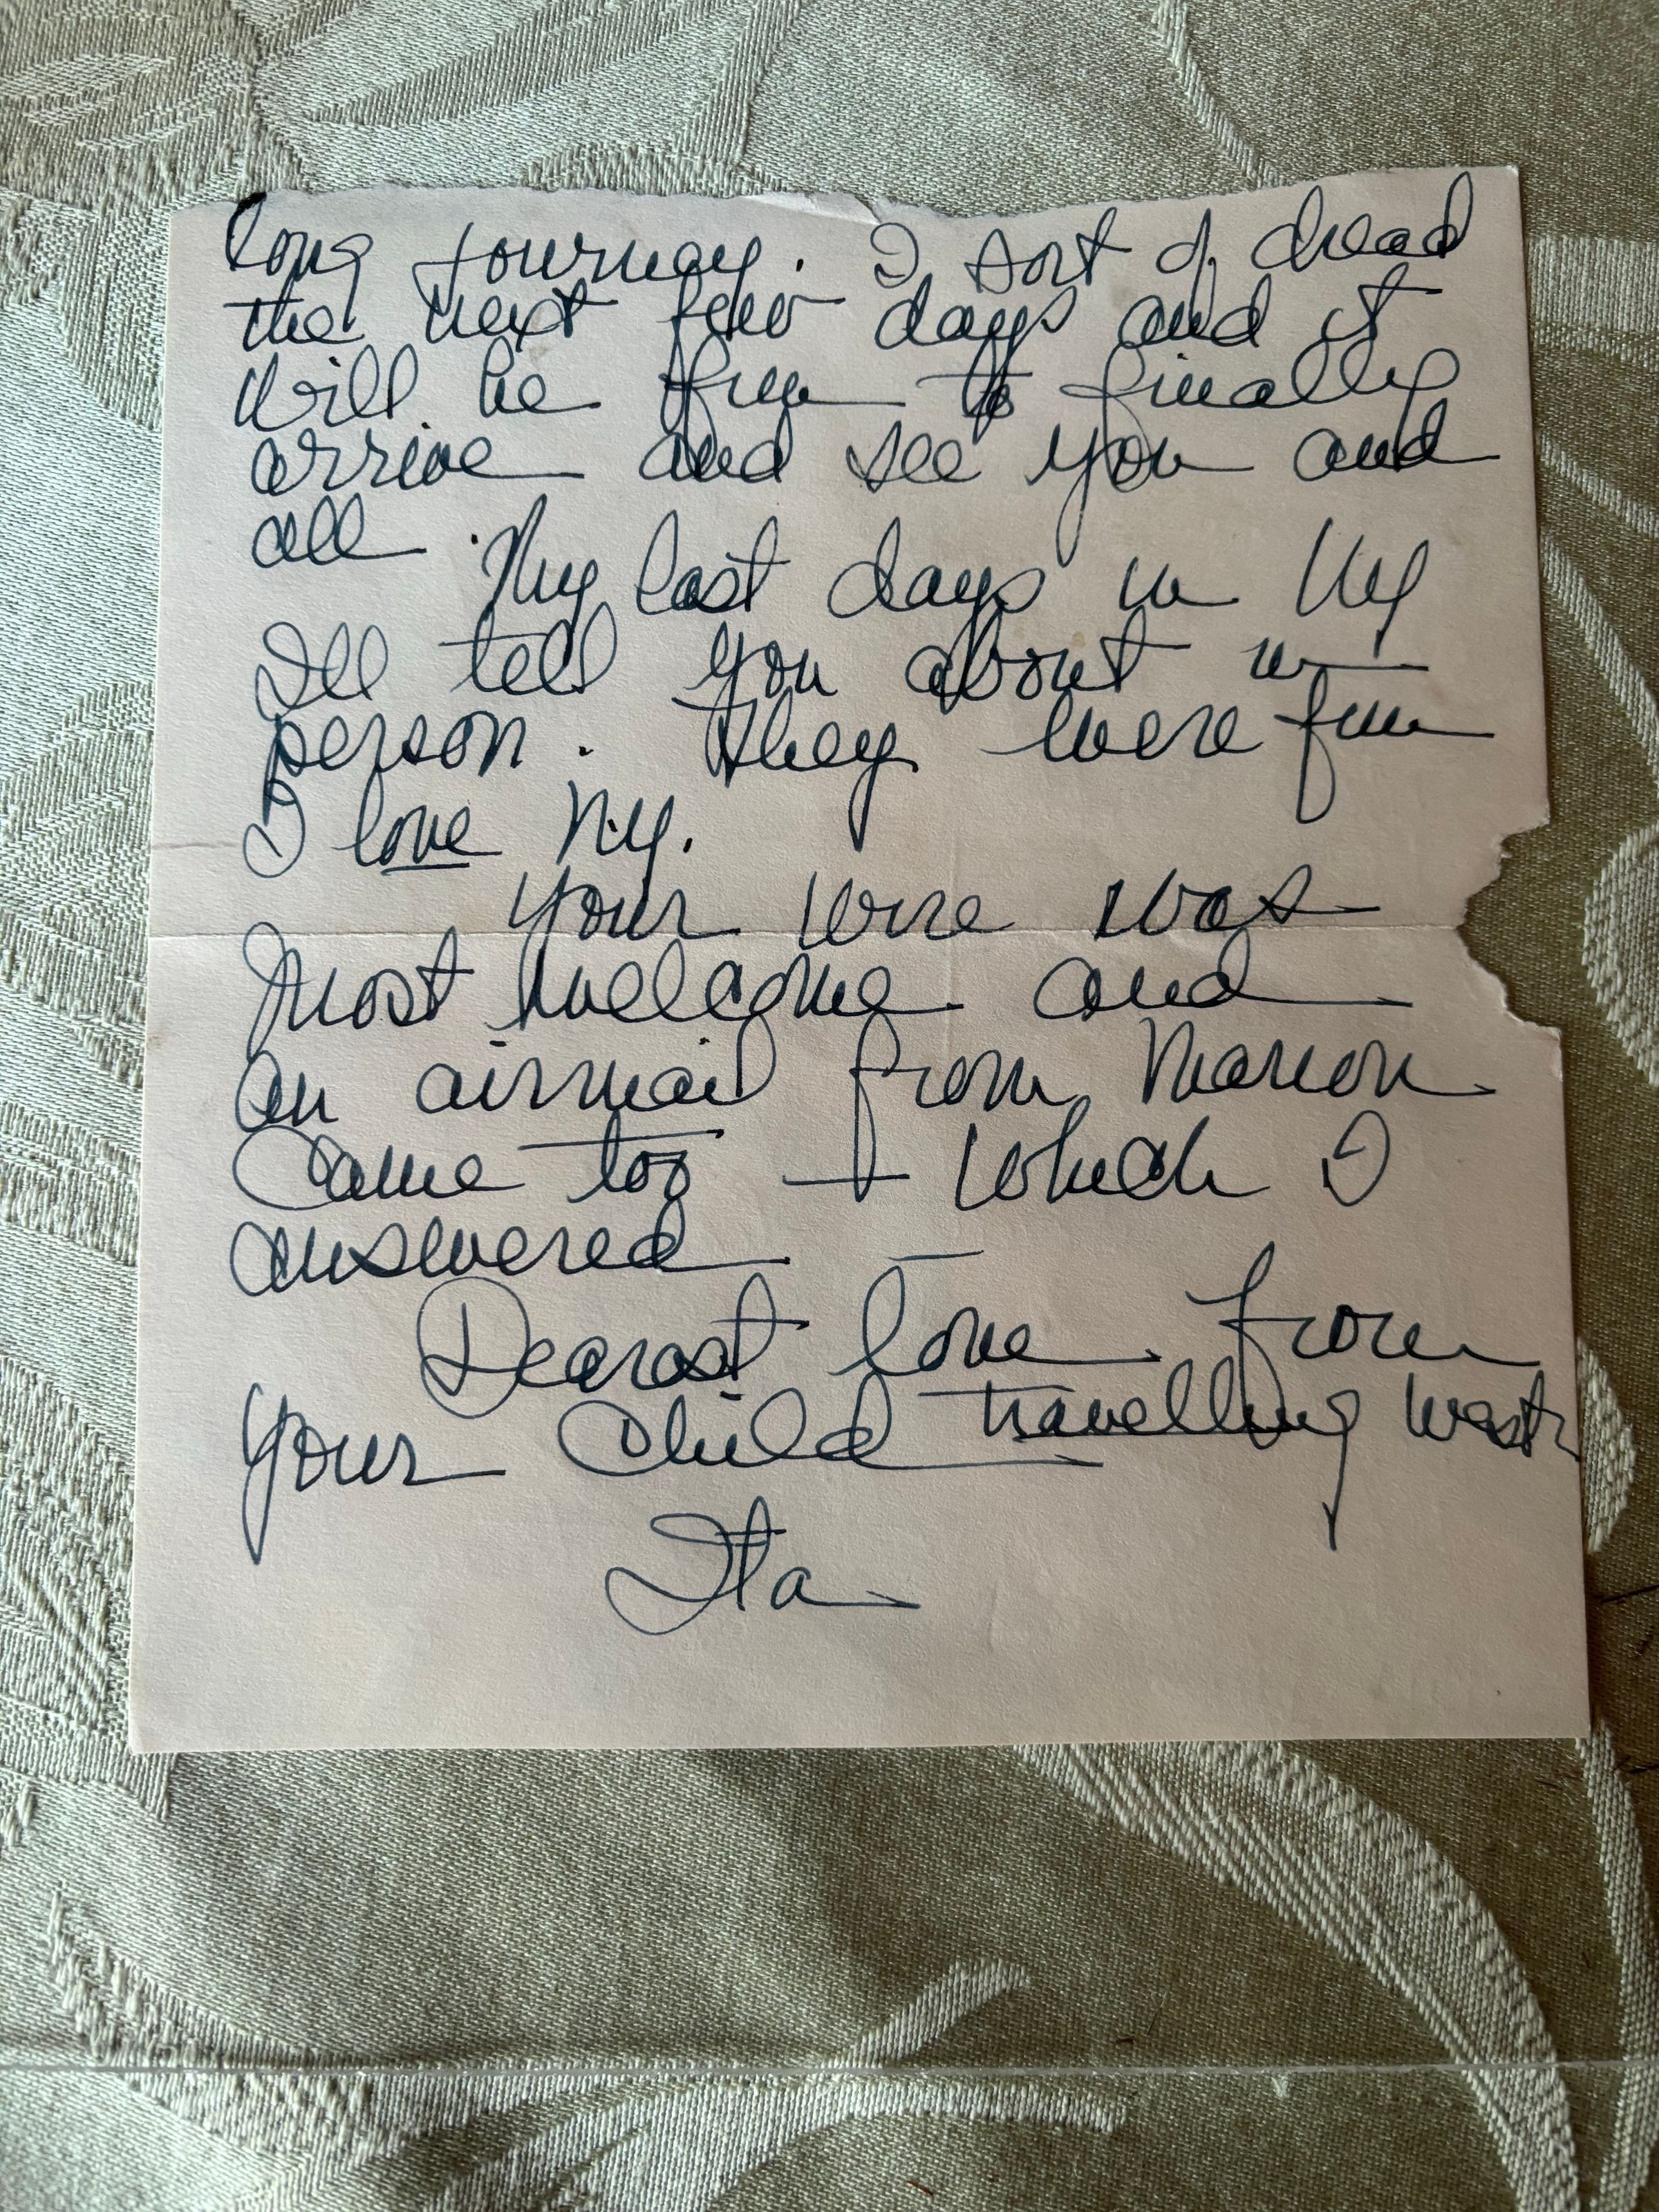 long journey. I sort of dread
the next few days and it
will be fun to finally
arrive and see you and
all. My last days in NY
I'll tell you about in
person. They were fun
I love N.Y.
Your wire was
most welcome and
an airmail from Marion
came too + which I
answered —
Dearest love from
your child travelling west
Ita